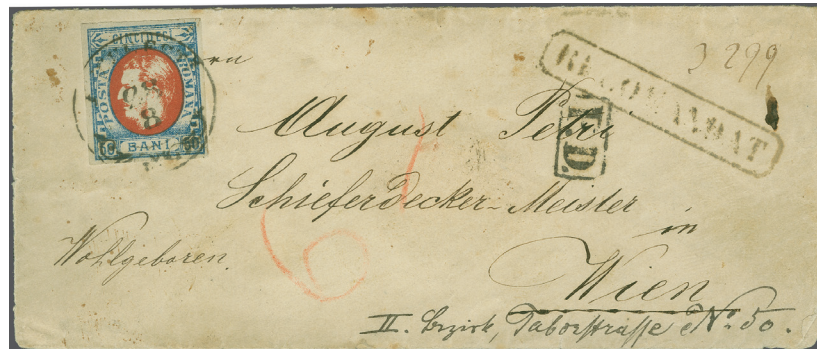 CINCIDECI
POSTA ROMANA
50 BANI 50
28
8
RECOMANDAT
3299
P.D.
August Petri
Schieferdecker-Meister
in
Wohlgeboren.
Wien
II. Bezirk, Taborstrasse No. 50.